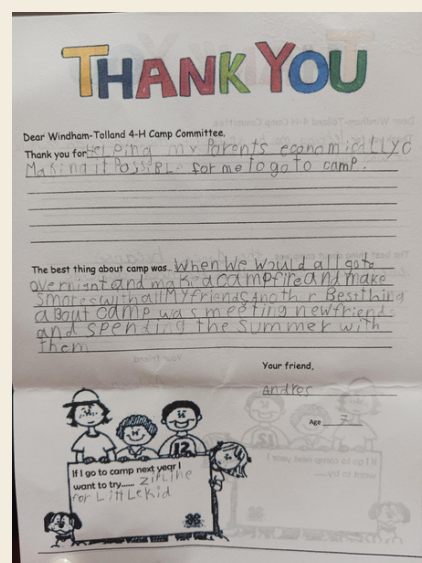 THANK YOU
Dear Windham-Tolland 4-H Camp Committee,
Thank you for Helping my Parents economically
Making it Possible for me to go to camp.
The best thing about camp was.. When We Would all go to
overnight and make a campfire and Make
Smores with all My friends Another Best thing
about camp was meeting new friends
and spending the summer with
them
Your friend,
Andres
Age 7
12
If I go to camp next year I
want to try..... zipline
for Little kid